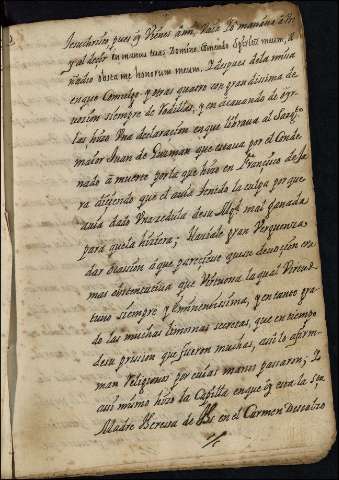 Jesuchristo, pues oy Viernes a mi, Vaso Yo mañana a Vi
y al decir in manus tuas Domine Comendo Spiritum meum, a
ñadio et sacame honorum meum. Y despues de la misa
en que Comulgo, y otras quatro con grandissima de
vocion siempre de Rodillas, y en acauando de oyr
las hizo Vna declaracion en que librava al Sarg.to
mador Juan de Guzman que estava por el Conde
nado a muerte por la que hizo en Francisco de Ja
ra diciendo que el auia tenido la culpa porque
auia dado Vna zedula de su Mg.d mal ganada
para que la hiziera; Hauiale gran Verguenza
dar ocasion a que pareciese que su deuocion era
mas obstentatiua que Virtuosa la qual Virtud
tuuo siempre y eminentissima, y en tanto gra
do las muchas limosnas secretas, que en tiempo
de su prision que fueron muchas, assi lo afir
man Religiosos por cuias manos passaron; Yo
assi mismo hizo la Capilla en que oy esta la S.ta
Madre Theressa de Jhs en el Carmen Descalzo